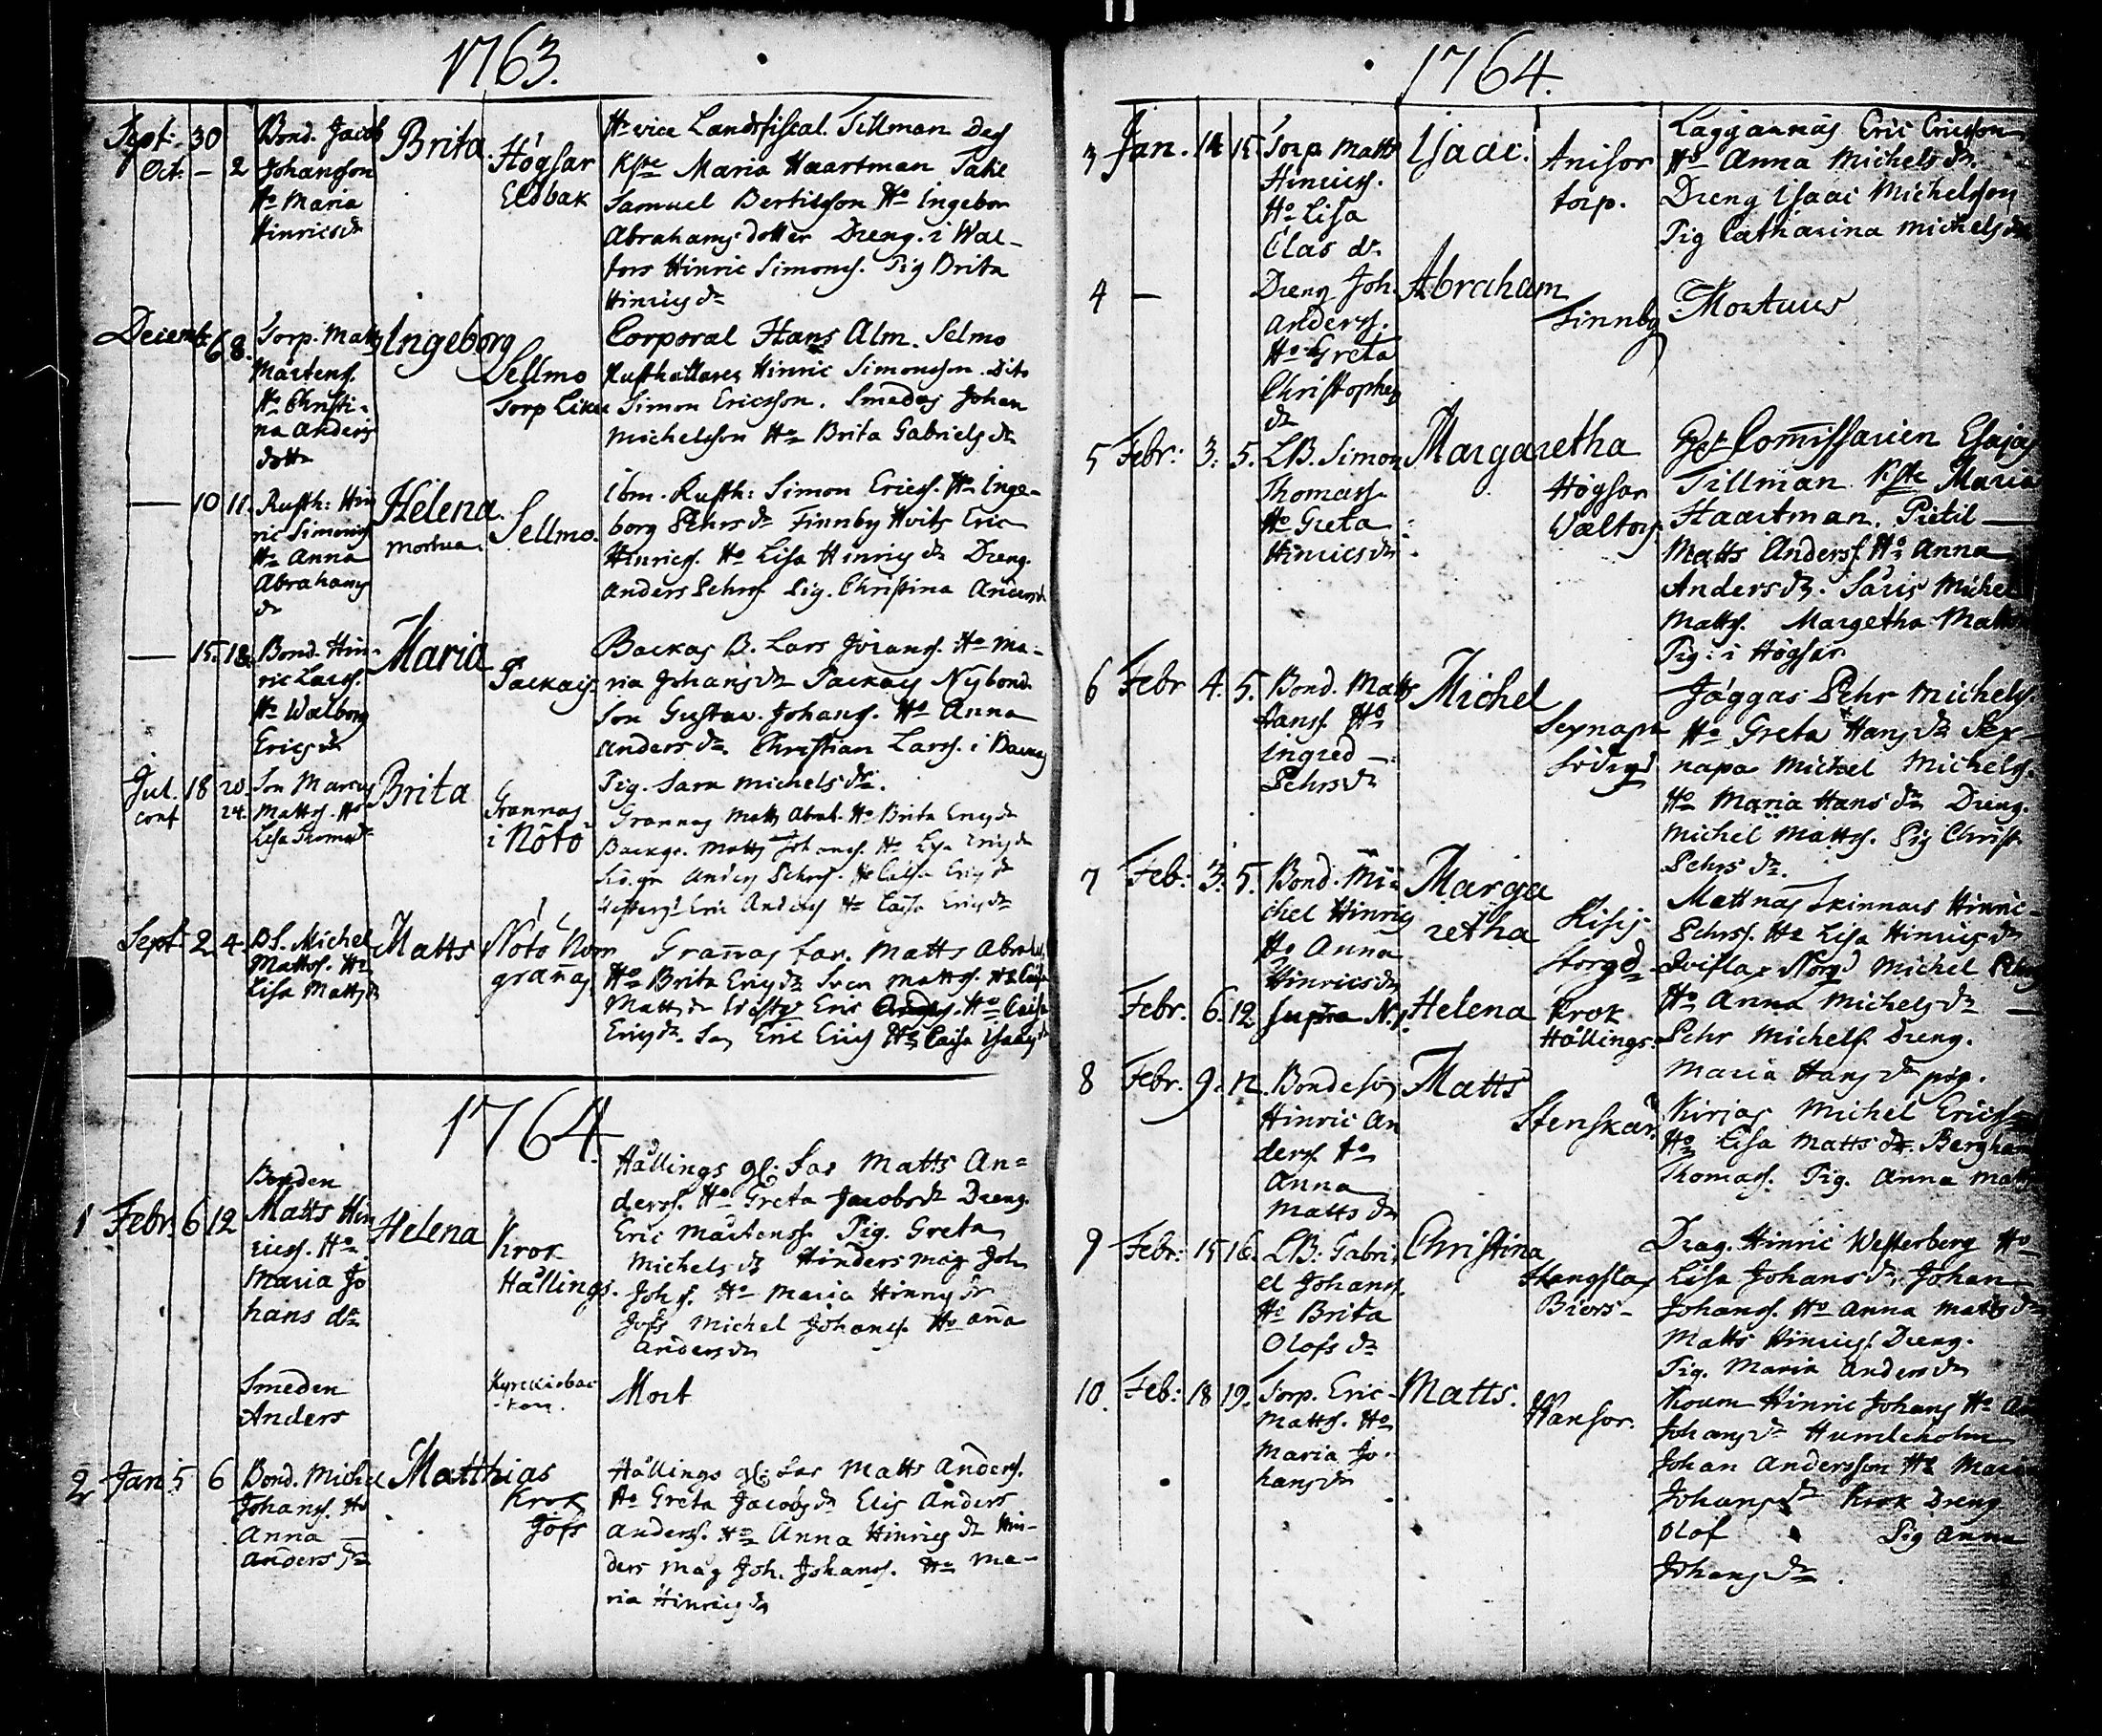 1763.
Sept: 30
Oct: — 2
Bond. Jacob
Johansson
Ho Maria
Hinricsdr
Brita
Högsar
Eldbak
Hr vice Landsfiscal Tillman Dess
Kste Maria Haartman
Samuel Bertilsson Ho Ingebor
Abrahams dotter Dreng. i Wal-
tors Hinric Simonss. Pig Brita
Hinricsdr
Decemb. 6 8.
Torp. Matts
Mårtens.
Ho Christi-
na Anders
dotter
Ingeborg
Sellmo
Torp
Corporal Hans Alm. Selmo
Rusthållares Hinric Simonsson. Dito
Simon Ericsson. Smedens Johan
Michelsson Ho Brita Gabrielsdr
— 10 11.
Rusth: Hin
ric Simonss
Ho Anna
Abrahams
dr
Helena.
mortua.
Sellmo.
ibm. Rusth: Simon Ericss. Ho Inge-
borg Pehrsdr Finnby Hvits Eric
Hinricss. Ho Lisa Hinricsdr Dreng.
Anders Pehrss Pig. Christina Andersdr
— 15. 18.
Bond. Hin-
ric Larss.
Ho Walborg
Ericsdr
Maria
Packais
Backas B. Lars Jöranss. Ho Ma-
ria Johansdr Packais Nybond.
Son Gustav. Johanss. Ho Anna
Andersdr. Christian Larss. i Backas
Pig. Sara Michelsdr.
Jul. 18 20.
conf 24.
Son Marcus
Mattss. Ho
Lisa Thomasdr
Brita
Grannas
i Nötö
Grannas Matts Abrah. Ho Brita Ericsdr
Matts Johanss. Ho Lisa Ericsdr
Anders Pehrss. Ho Caisa Ericsdr
Eric Anderss Ho Caisa Ericsdr
Sept 2 4.
BS. Michel
Mattss. Ho
Lisa Mattsdr
Matts
Nötö Norr
grañas
Grañas far. Matts Abrahs
Ho Brita Ericsdr Sven Mattss. Ho Caisa
Mattsdr Eric Anderss. Ho Caisa
Ericsdr. Eric Ericss Ho Caisa Isaacsdr
1764.
1 Febr. 6 12
Bonden
Matts Hin
ricss. Ho
Maria Jo
hans dr
Helena
Krok
Hållings.
Hållings gl: far Matts An=
derss. Ho Greta Jacobsdr Dreng.
Eric Mårtenss. Pig. Greta
Michelsdr Hinders måg Joh
Johss. Ho Maria Hinricsdr
Jofs Michel Johanss. Ho aña
Andersdr
Smeden
Anders
Kyrckiobac-
ken.
Mort
2 Jan 5 6
Bond. Michel
Johanss. Ho
Anna
Andersdr
Matthias
Krok
Jofs
Hållings gl: far Matts Anderss.
Ho Greta Jacobsdr Elis Anders
Anderss. Ho Anna Hinricsdr Hin-
ders måg Joh. Johanss. Ho Ma-
ria Hinricsdr
1764.
3 Jan. 14 15.
Torp Matts
Hinricss.
Ho Lisa
Clas dr
Isaac.
Anisor
torp.
Laggarnäs Eric Ericsson
Ho Anna Michelsdr.
Dreng Isaac Michelsson
Pig Catharina Michelsdr
4 —
Dreng Joh.
Anderss.
Ho Greta
Christophers
dr
Abraham
Finnby
Mortuus
5 Febr: 3. 5.
LB. Simon
Thomass.
Ho Greta
Hinricsdr
Margaretha
Högsar
Waltors.
Comissarien Esajas
Tillman Kste Maria
Haartman. Pietil —
Matts Anderss. Ho Anna
Andersdr. Saris Michel
Mattss. Margetha Matts
Pig: i Högsar
6 Febr 4. 5.
Bond. Matts
Hanss. Ho
Ingred —
Pehrsdr
Michel
Seynapa
Södergd
Jäggas Pehr Michelss.
Ho Greta Hansdr Sey-
napa Michel Michelss.
Ho Maria Hansdr Dreng.
Michel Mattss. Pig Christ
Pehrsdr.
7 Feb: 3. 5.
Bond. Mi-
chel Hinrics
Ho Anna
Hinricsdr
Marga
retha
Risis
Storgd
Mattnäs Skinnars Hinric
Pehrss. Ho Lisa Hinricsdr
Qvislax Norgd Michel Pehrss
Ho Anna Michelsdr —
Pehr Michelss. Dreng.
Maria Hansdr pig.
Febr. 6. 12.
supra N. 1.
Helena
Krok
Hållings.
8 Febr. 9. 12.
Bondeson
Hinric An
derss. Ho
Anna
Matts dr
Matts
Stenskär.
Kirjas Michel Ericss
Ho Lisa Mattsdr. Bergham
Thomass. Pig. Anna Matts
9 Febr: 15 16.
LB: Gabri-
el Johanss.
Ho Brita
Olofs dr
Christina
Stangslax
Biers-
Drag. Hinric Westerberg Ho
Lisa Johansdr. Johan
Johanss. Ho Anna Mattsdr
Matts Hinricss. Dreng.
Pig. Maria Andersdr
10. Feb: 18 19.
Torp. Eric
Mattss. Ho
Maria Jo-
hansdr
Matts.
Wansor.
Hinric Johans Ho
Johansdr Humleholm
Johan Andersson Ho Maria
Johansdr Krok Dreng
Olof Pig Anna
Johansdr.